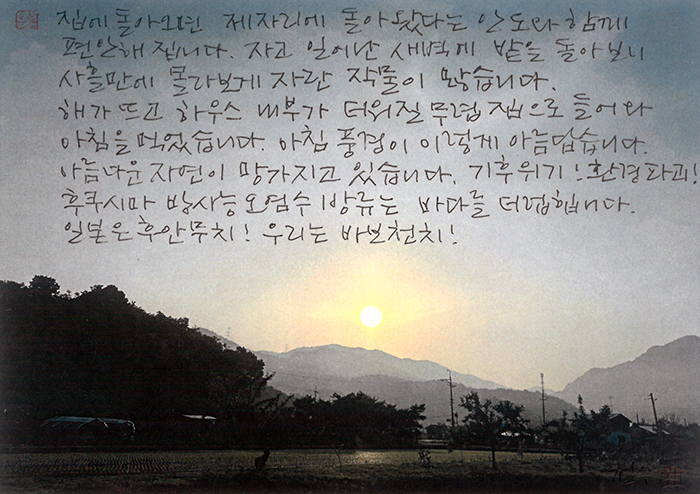 집에 돌아오면 제자리에 돌아왔다는 안도와 함께
편안해 집니다. 자고 일어난 새벽에 밭을 돌아보니
사흘만에 몰라보게 자란 작물이 많습니다.
해가 뜨고 하우스 내부가 더워질 무렵 집으로 들어와
아침을 먹었습니다. 아침 풍경이 이렇게 아름답습니다.
아름다운 자연이 망가지고 있습니다. 기후위기! 환경파괴!
후쿠시마 방사능 오염수 방류는 바다를 더럽힙니다.
일본은 후안무치! 우리는 바보천치!